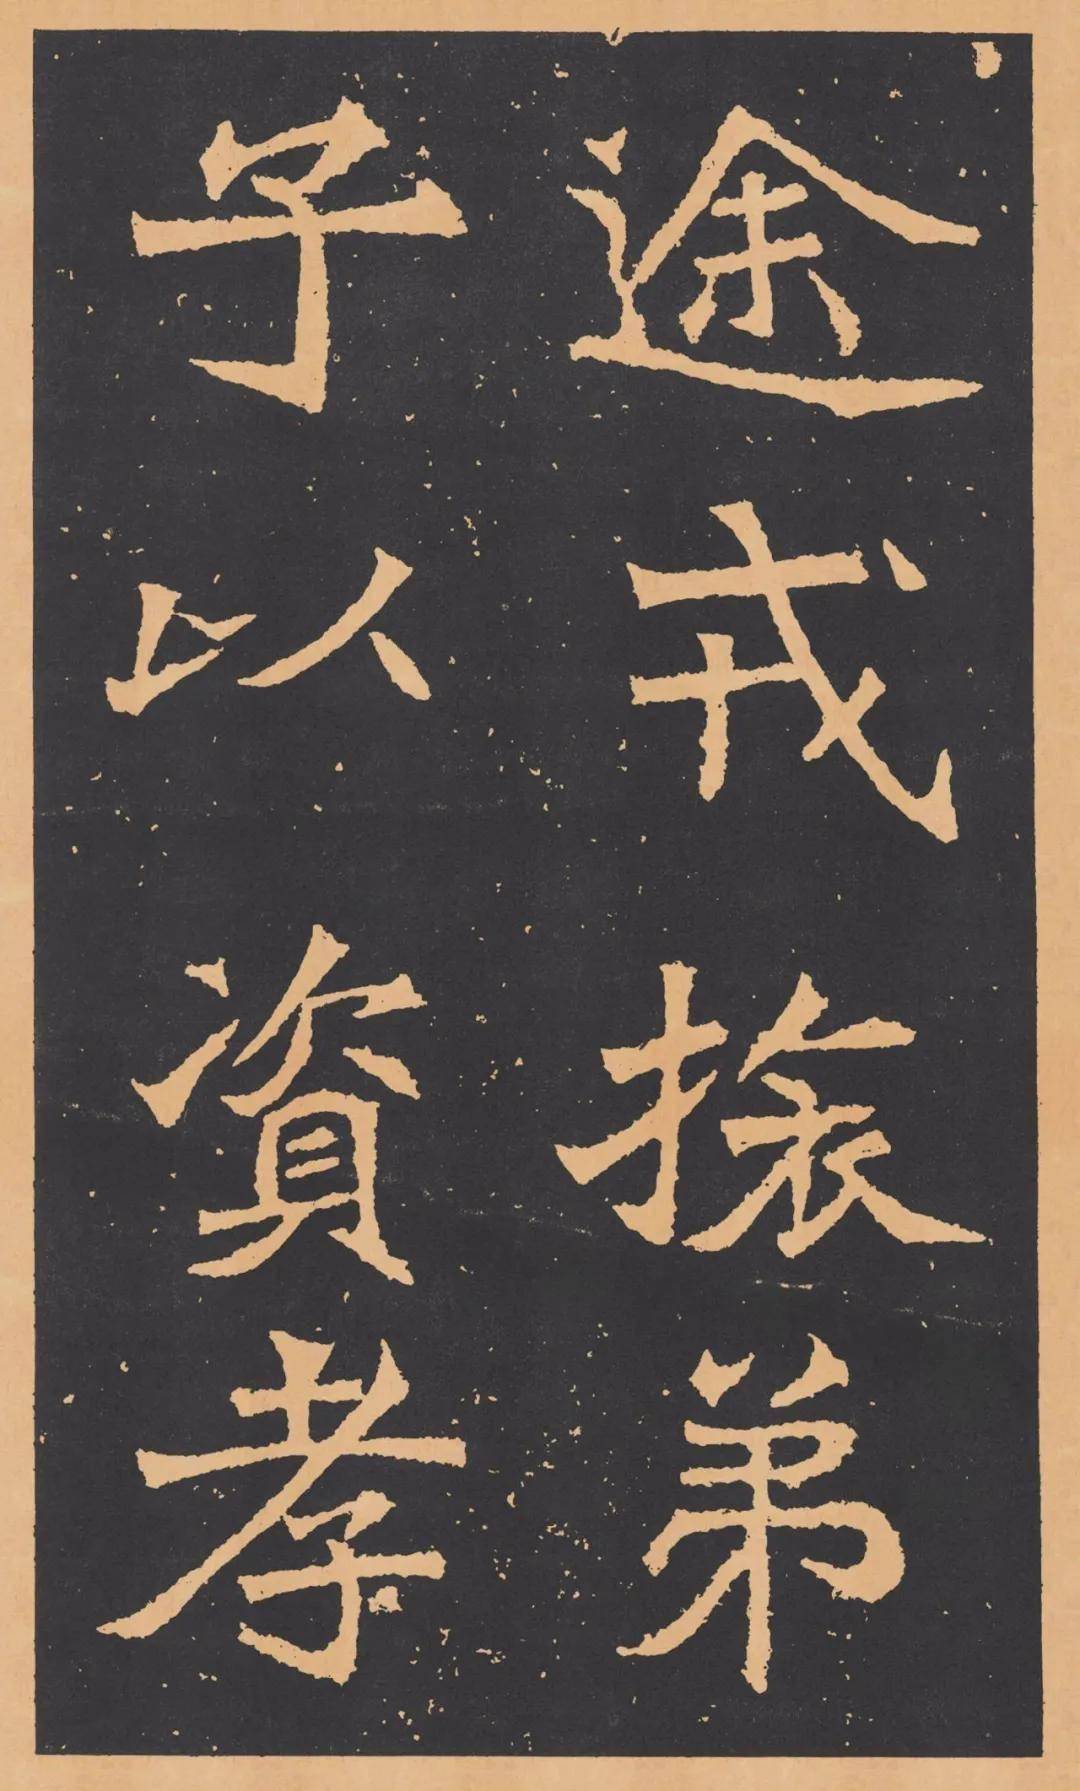 途戎振弟
子以資孝